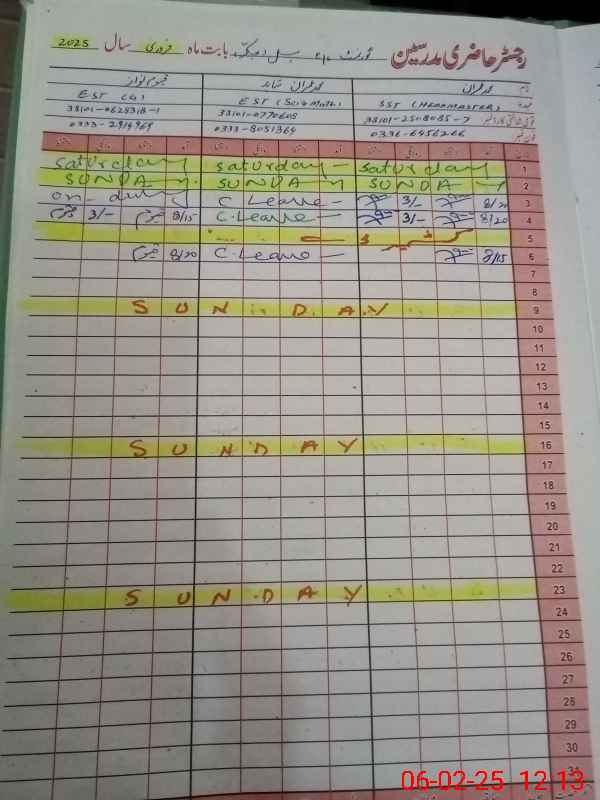 رجسٹر حاضری مدرسین گورنمنٹ بابت ماہ فروری سال 2025
نام محمد عمران محمد عمران شاہد
عہدہ SST (HEADMASTER) EST (Sci-Math) EST (G)
38101-0770608
فون نمبر 0336-6456266 0333-8051364 0333-2914969
1 Saturday Saturday Saturday
2 SUNDAY SUNDAY SUNDAY
3 8/20 3/- C Leave on-duty
4 8/20 3/- C.Leave 8/15 3/-
5 کشمیر ڈے
6 8/15 C.Leave 8/20
7
8
9 SUNDAY
10
11
12
13
14
15
16 SUNDAY
17
18
19
20
21
22
23 SUNDAY
24
25
26
27
28
29
30
31
06-02-25 12:13